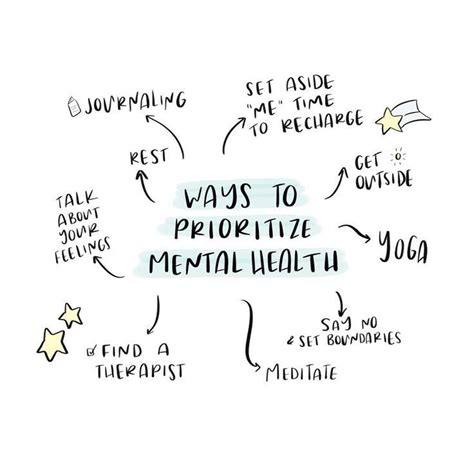 WAYS TO
PRIORITIZE
MENTAL HEALTH
JOURNALING
SET ASIDE
"ME" TIME
TO RECHARGE
REST
GET
OUTSIDE
TALK
ABOUT
YOUR
FEELINGS
YOGA
SAY NO
& SET BOUNDARIES
FIND A
THERAPIST
MEDITATE